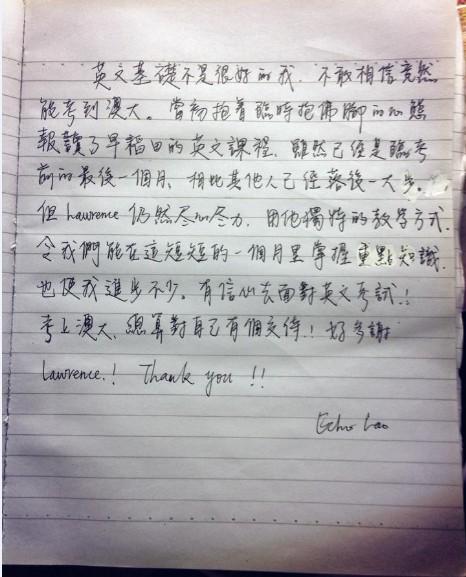 英文基礎不是很好的我，不敢相信竟然
能考到澳大。當初抱着臨時抱佛腳的心態
報讀了早稻田的英文課程，雖然已經是臨考
前的最後一個月，相比其他人已經落後一大步，
但 Lawrence 仍然尽心尽力，用他獨特的教學方式，
令我們能在這短短的一個月里掌握重點知識，
也使我進步不少。有信心去面對英文考試！！
考上澳大，總算對自己有個交待！好多謝
Lawrence！ Thank you !!
Echo Lao